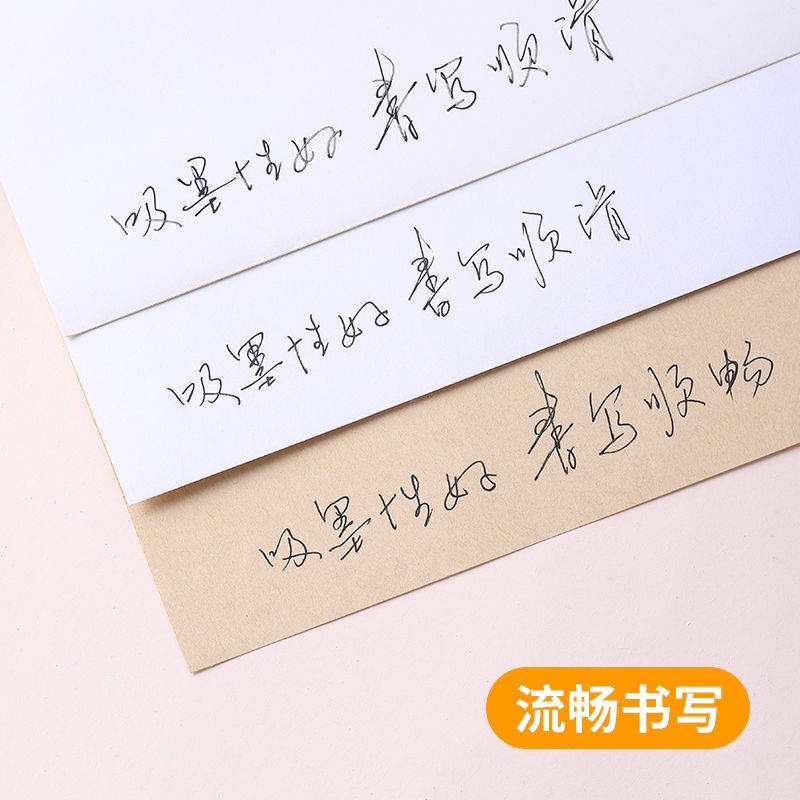 吸墨性好 書写顺滑
吸墨性好 書写顺滑
吸墨性好 書写顺畅
流畅书写